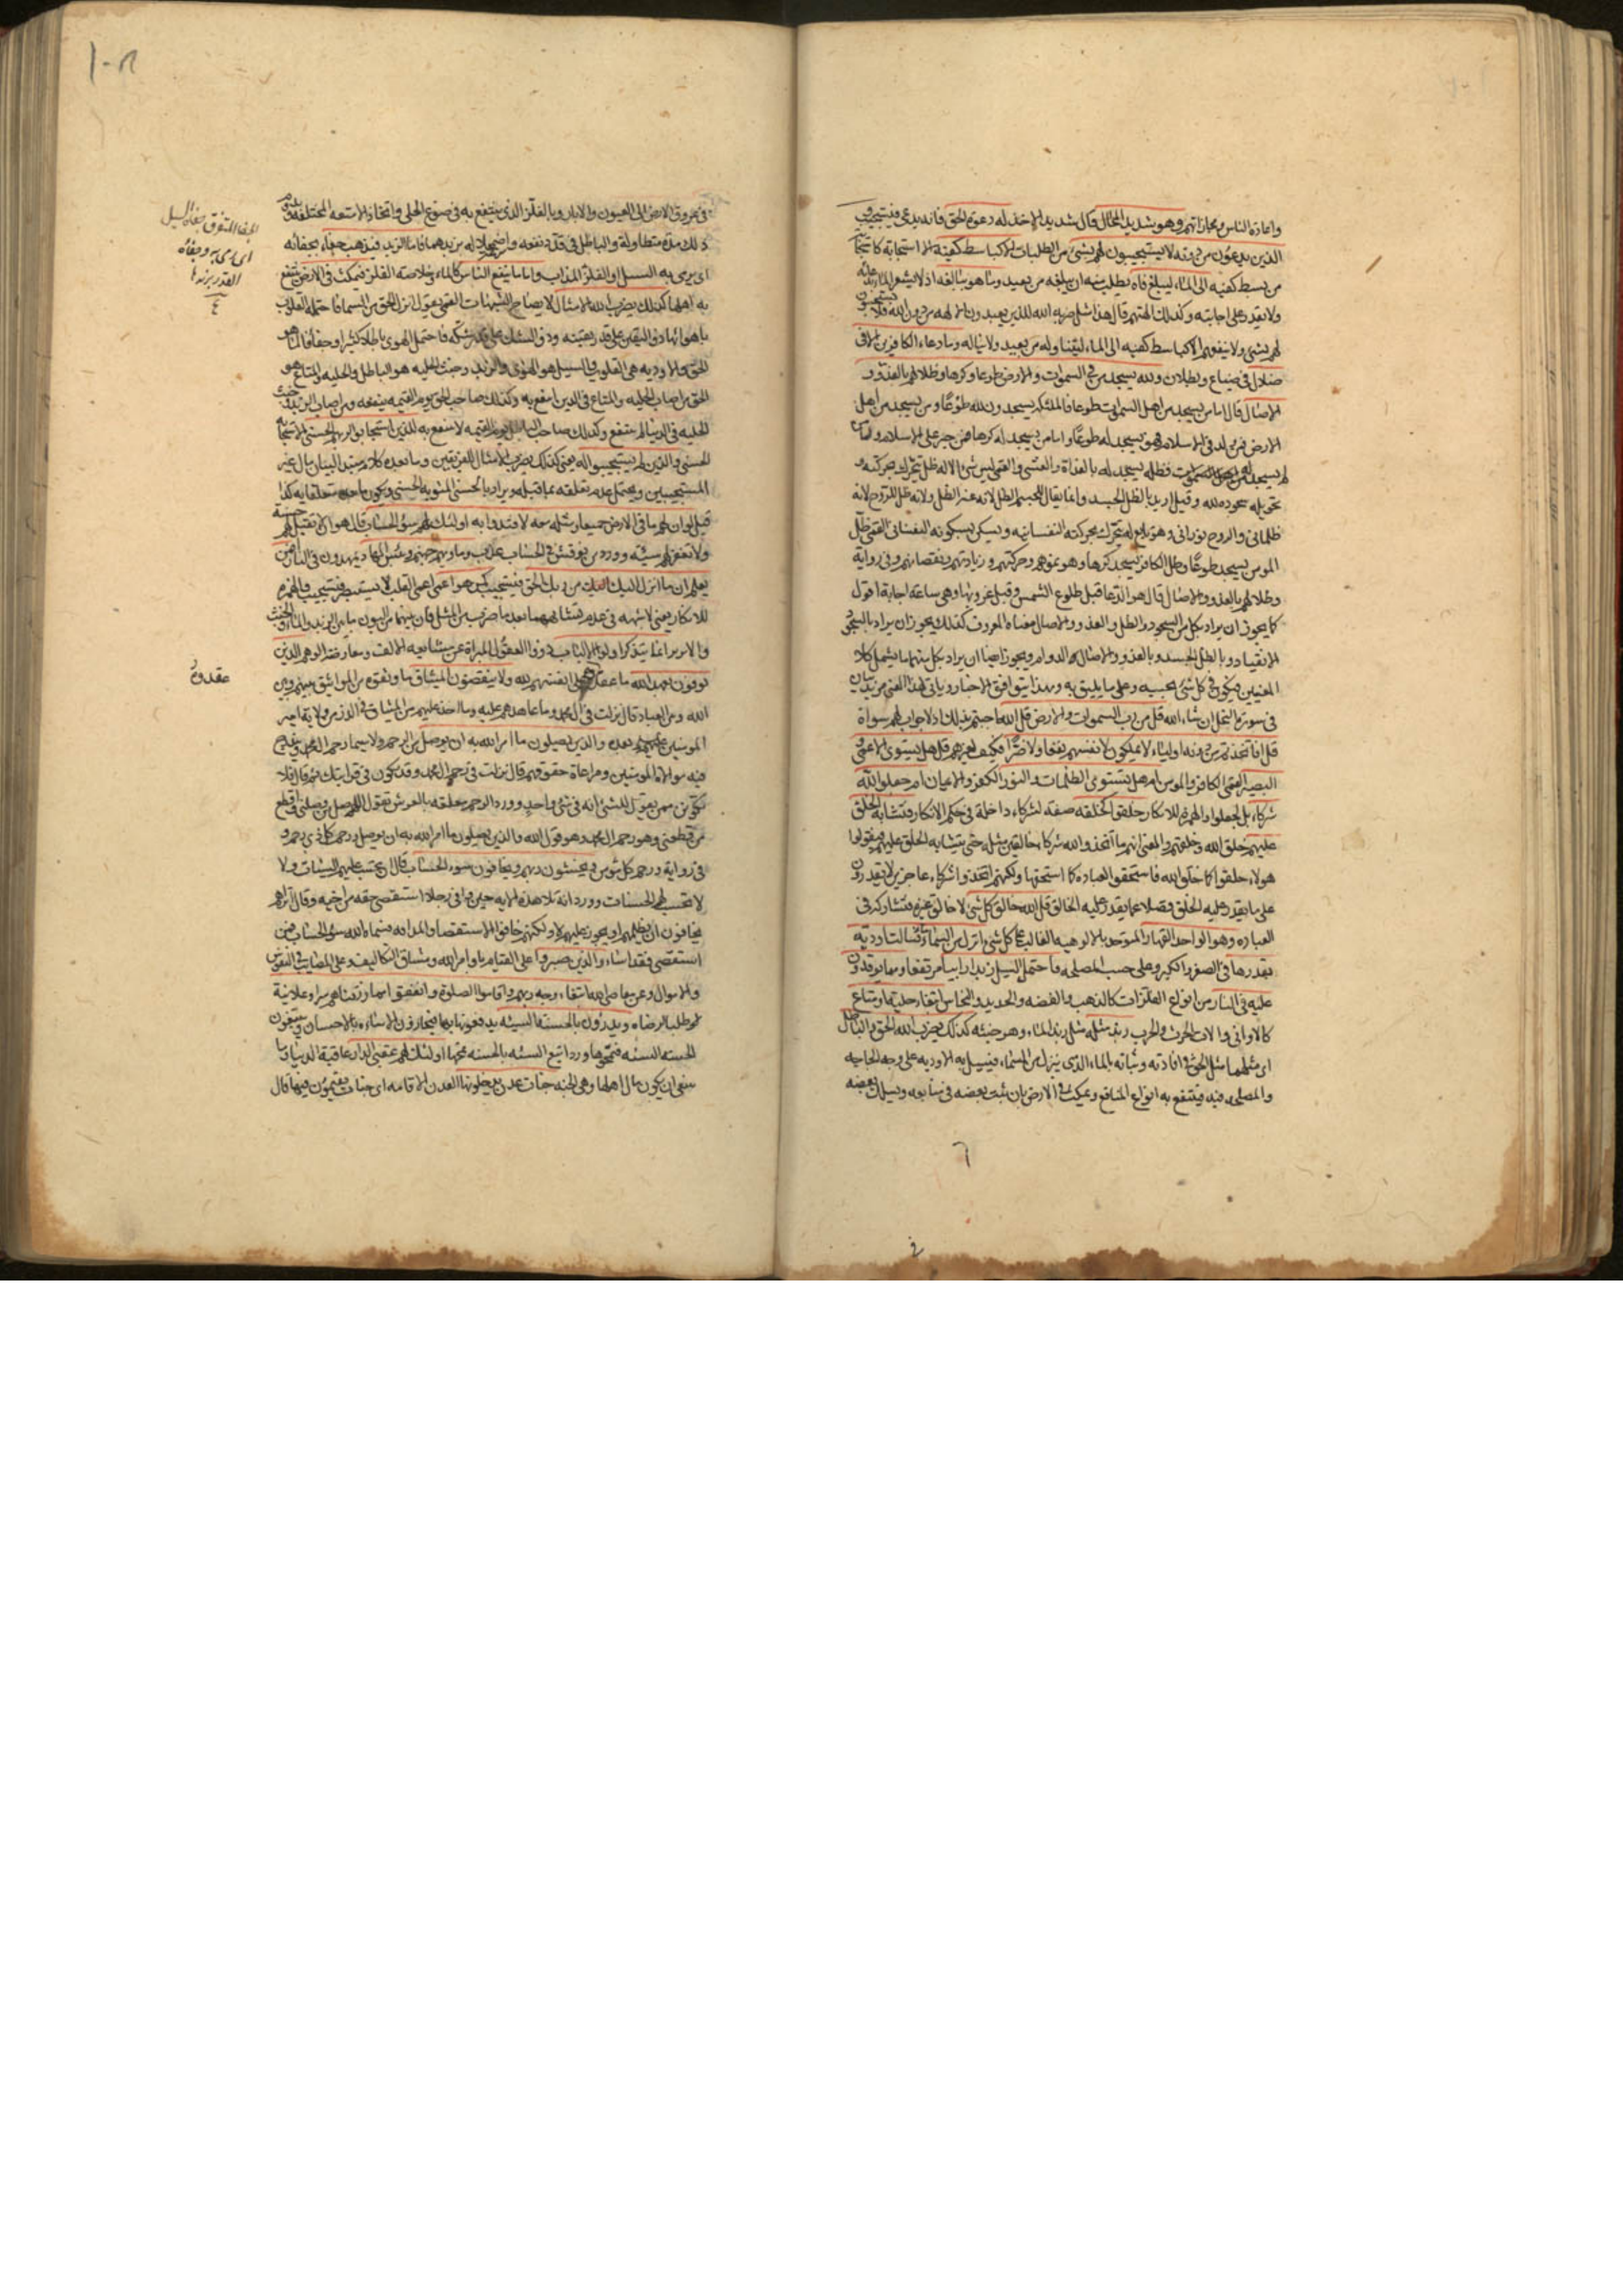 واعادة الناس ومجازاتهم وهو شديد المحال قال شديد الاخذ له دعوة الحق فانه يدعى فيستجيب
الذين يدعون من دونه لا يستجيبون لهم بشئ من الطلبات الا كباسط كفيه الا استجابة كاستجابة
من بسط كفيه الى الماء ليبلغ فاه يطلب منه ان يبلغه من بعيد وما هو ببالغه اذ لا يشعر الماء بدعائه
ولا يقدر على اجابته وكذلك الهتهم قال هذا مثل ضربه الله للذين يعبدون الالهة من دون الله فلا يستجيبون
لهم بشئ ولا ينفعهم الا كباسط كفيه الى الماء ليتناوله من بعيد ولا يناله وما دعاء الكافرين الا فى
ضلال فى ضياع وبطلان ولله يسجد من فى السموات والارض طوعا وكرها وظلالهم بالغدو و
الاصال قال اما من يسجد من اهل السموات طوعا فالملئكة يسجدون لله طوعا ومن يسجد من اهل
الارض فمن ولد فى الاسلام فهو يسجد له طوعا واما من يسجد له كرها فمن جبر على الاسلام واما من
لم يسجد فظله يسجد له بالغداة والعشى والقمى ليس شئ الا له ظل يتحرك بحركته و
تحويله سجوده لله وقيل اريد بالظل الجسد وانما يقال للجسم الظل لانه عنه الظل ولانه ظل للروح لانه
ظلمانى والروح نورانى وهو تابع له يتحرك بحركته النفسانيه ويسكن بسكونه النفسانى القمى ظل
المومن يسجد طوعا وظل الكافر يسجد كرها وهو نموهم وحركتهم وزيادتهم ونقصانهم وفى رواية
وظلالهم بالغدو والاصال قال هو الدعا قبل طلوع الشمس وقبل غروبها وهى ساعة اجابة اقول
كما يجوز ان يراد بكل من السجود والظل والغدو والاصال معناه المعروف كذلك يجوز ان يراد بالسجود
الانقياد وبالظل الجسد وبالغدو والاصال الدوام ويجوز ايضا ان يراد بكل منهما ما يشمل كلا
المعنيين فيكون فى كل شئ بحسبه وعلى ما يليق به وبهذا يتوافق الاخبار وياتى لهذا المعنى مزيد بيان
فى سورة النحل ان شاء الله قل من رب السموات والارض قل الله اجبهم بذلك اذ لا جواب لهم سواه
قل افاتخذتم من دونه اولياء لا يملكون لانفسهم نفعا ولا ضرا فكيف لغيرهم قل هل يستوى الاعمى و
البصير القمى الكافر والمومن ام هل يستوى الظلمات والنور الكفر والايمان ام جعلوا لله
شركاء بل اجعلوا والهمزة للانكار خلقوا كخلقه صفة لشركاء داخلة فى حكم الانكار فتشابه الخلق
عليهم خلق الله وخلقهم والمعنى انهم ما اتخذوا لله شركاء خالقين مثله حتى يتشابه الخلق عليهم فيقولوا
هولاء خلقوا كما خلق الله فاستحقوا العباده كما استحقها ولكنهم اتخذوا شركاء عاجزين لا يقدرون
على ما يقدر عليه الخلق فضلا عما يقدر عليه الخالق قل الله خالق كل شئ لا خالق غيره فيشاركه فى
العباده وهو الواحد القهار المتوحد بالالوهيه الغالب على كل شئ انزل من السماء ماء فسالت اوديه
بقدرها فى الصغر والكبر وعلى حسب المصلحه فاحتمل السيل زبدا رابيا مرتفعا ومما يوقدون
عليه فى النار من انواع الفلزات كالذهب والفضه والحديد والنحاس ابتغاء حلية او متاع
كالاوانى والات الحرث والحرب زبد مثله مثل زبد الماء وهو خبثه كذلك يضرب الله الحق والباطل
اى مثلهما مثل الحق فى افادته وثباته بالماء الذى ينزل من السماء فيسيل به الاوديه على وجه الحاجه
والمصلحه فيه فينتفع به انواع المنافع ويمكث فى الارض بان يثبت بعضه فى منابعه ويسلك بعضه
فى عروق الارض الى العيون والابار وبالفلز الذى ينتفع به فى صوغ الحلى واتخاذ الامتعه المختلفه ويدوم
ذلك مدة متطاولة والباطل فى قلة نفعه وسرعة زواله بزبدهما فاما الزبد فيذهب جفاء بجفائه
اى يرمى به السيل او الفلز المذاب واما ما ينفع الناس كالماء وخلاصة الفلز فيمكث فى الارض ينتفع
به اهلها كذلك يضرب الله الامثال لايضاح الشبهات القمى يقول انزل الحق من السماء فاحتمله القلوب
باهوائها ذو اليقين على قدر يقينه وذو الشك على قدر شكه فاحتمل الهوى باطلا كثيرا وجفاء فالماء هو
الحق والاوديه هى القلوب والسيل هو الهوى والزبد وخبث الحليه هو الباطل والحليه والمتاع هو
الحق من اصاب الحليه والمتاع فى الدين انتفع به وكذلك صاحب الحق يوم القيمه ينفعه ومن اصاب الزبد وخبث
الحليه فى الدنيا لم ينتفع وكذلك صاحب الباطل يوم القيمه لا ينتفع به للذين استجابوا لربهم الحسنى الاستجابة
الحسنى والذين لم يستجيبوا له يعنى كذلك يضرب الامثال للفريقين وما بعده كلام مبتدا لبيان مال غير
المستجيبين ويحتمل عدم تعلقه بما قبله ويراد بالحسنى المثوبه الحسنى ويكون ما بعده متعلقا به كذا
قيل لو ان لهم ما فى الارض جميعا ومثله معه لافتدوا به اولئك لهم سوء الحساب قال هو ان لا تقبل لهم حسنة
ولا تغفر لهم سيئه وورد من نوقش فى الحساب عذب وماويهم جهنم وبئس المهاد يمهدون فى النار افمن
يعلم ان ما انزل اليك من ربك الحق فيستجيب كمن هو اعمى اعمى القلب لا يستبصر فيستجيب والهمزه
للانكار يعنى لا شبهه فى عدم تشابههما بعد ما ضرب من المثل فان بينهما من البون ما بين الزبد والماء والخبث
والابريز انما يتذكر اولوا الالباب ذووا العقول المبراة عن مشايعه الالف ومعارضة الوهم الذين
يوفون بعهد الله ما عقدوه على انفسهم لله ولا ينقضون الميثاق ما وثقوه من المواثيق بينهم وبين
الله وبين العباد قال نزلت فى ال محمد وما عاهدهم عليه وما اخذ عليهم من الميثاق فى الذر من ولاية امير
المومنين بعده والذين يصلون ما امر الله به ان يوصل من الرحم ولا سيما رحم ال محمد ويندرج
فيه موالاة المومنين ومراعاة حقوقهم قال نزلت فى رحم ال محمد وقد يكون فى قرابتك ثم قال فلا
تكونن ممن يقول للشئ انه فى شئ واحد وورد الرحم معلقه بالعرش تقول اللهم صل من وصلنى واقطع
من قطعنى وهو رحم ال محمد وهو قول الله والذين يصلون ما امر الله به ان يوصل ورحم كل ذى رحم و
فى رواية ورحم كل مومن ويخشون ربهم ويخافون سوء الحساب قال يحسب عليهم السيئات ولا
لا تحسب لهم الحسنات وورد انه تلا هذه الايه حين وافى رجلا استقصى حقه من اخيه وقال اتراهم
يخافون ان يظلمهم او يجور عليهم لا ولكنهم خافوا الاستقصا والمداقه فسماه الله سوء الحساب فمن
استقصى فقد اساء والذين صبروا على القيام باوامر الله ومشاق التكاليف وعلى المصايب فى النفوس
والاموال وعن معاصى الله ابتغاء وجه ربهم واقاموا الصلوة وانفقوا مما رزقناهم سرا وعلانية
طلبا لرضاه ويدرؤن بالحسنة السيئه يدفعونها بها فيجازون الاساءه بالاحسان ويتبعون
الحسنه السيئه فتمحوها وورد اتبع السيئه بالحسنه تمحها اولئك لهم عقبى الدار عاقبة الدنيا وما
ينبغى ان يكون مال اهلها وهى الجنه جنات عدن يدخلونها العدن الاقامه اى جنات يقيمون فيها قال
عقدوه